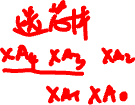 选茬样
XA4 XA3 XA2
XA1 XA0